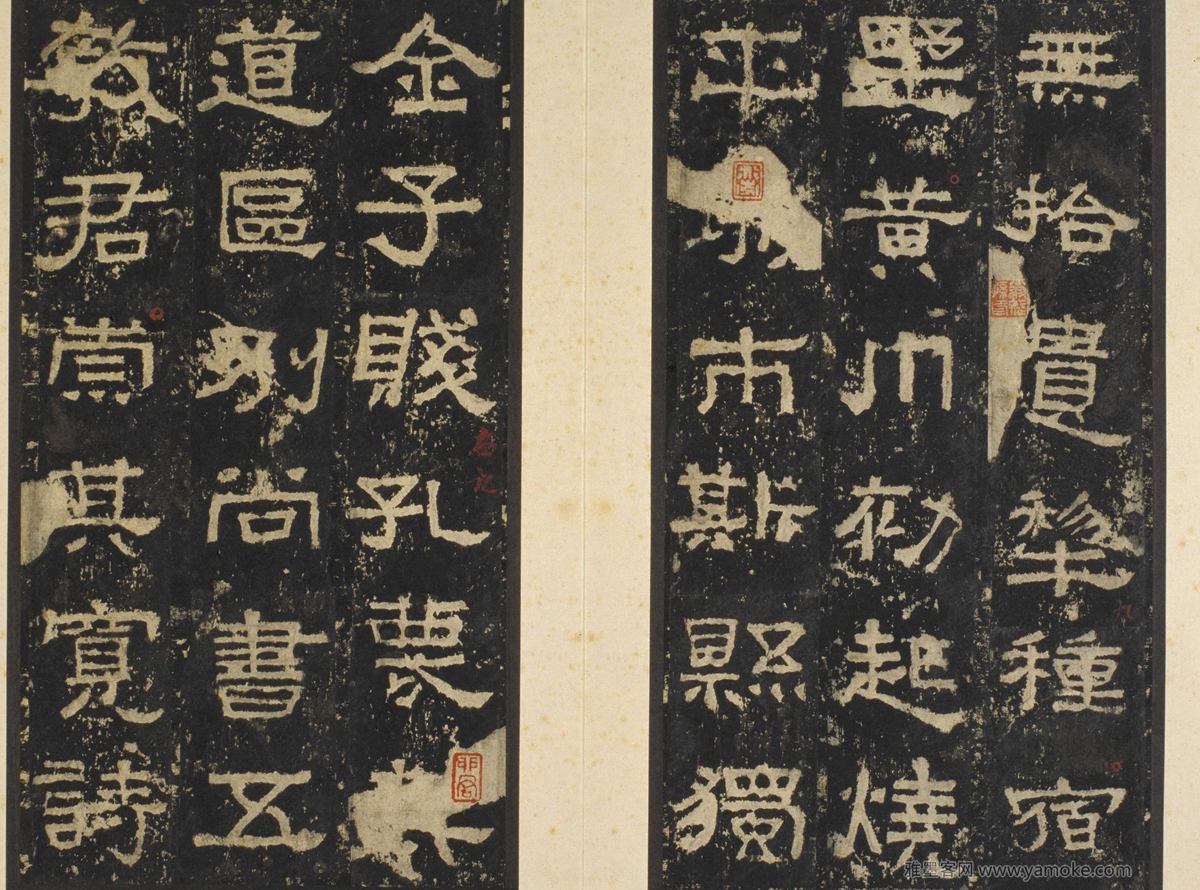 無拾遺犂種宿
壄黃巾初起燒
平市斯縣獨
全子賤孔蔑
道區別尚書五
教君崇其寬詩
九
雅墨客网 www.yamoke.com